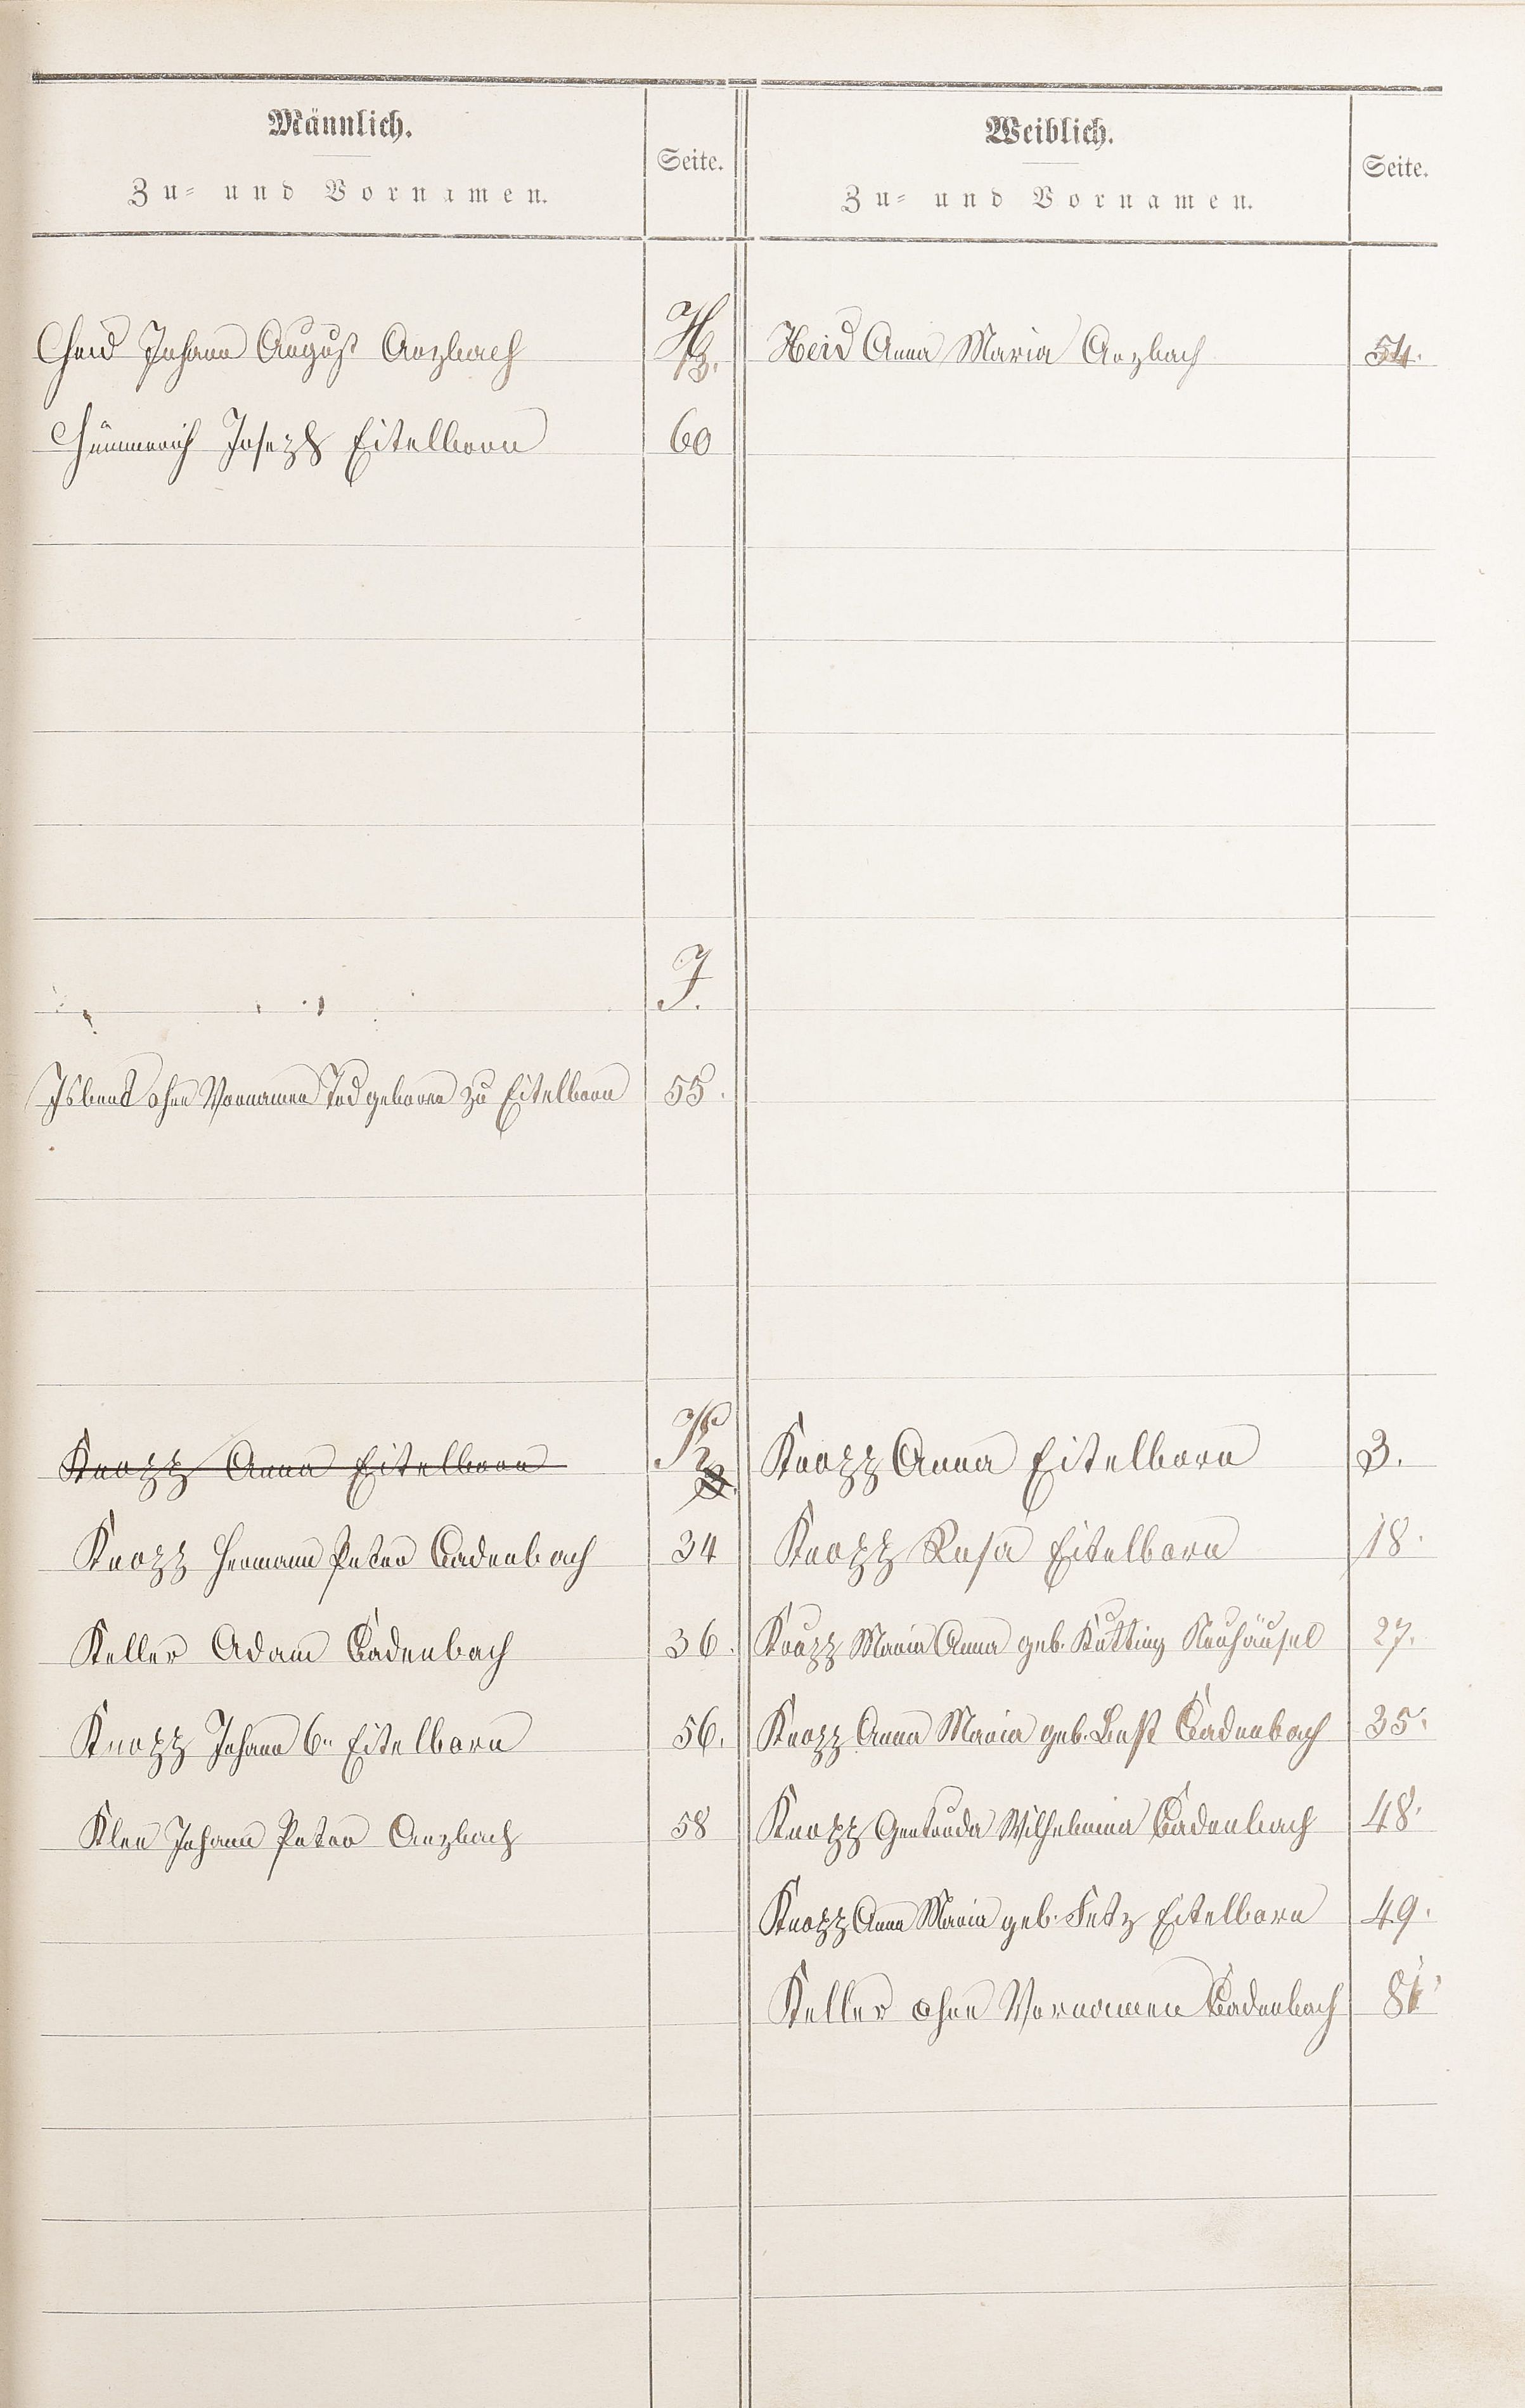 Männlich.
Zu- und Vornamen.
Seite.
Weiblich.
Zu- und Vornamen.
Seite.
H
Heid Johann August Arzbach 13. Heid Anna Maria Arzbach 54.
Hümmerich Joseph Eitelborn 60
J.
Isbert ohne Vornamen Tod geboren zu Eitelborn 55.
K
Knopp Anna Eitelborn 3. Knopp Anna Eitelborn 3.
Knopp Hermann Peter Cadenbach 34 Knopp Rosa Eitelborn 18.
Keller Adam Cadenbach 36. Knopp Maria Anna geb. Kütting Neuhäusel 27.
Knopp Johann 6r Eitelborn 56. Knopp Anna Maria geb. Best Cadenbach 35.
Klee Johann Peter Arzbach 58 Knopp Gertruda Wilhelmina Cadenbach 48.
Knopp Anna Maria geb. Fetz Eitelborn 49.
Keller ohne Vornamen Cadenbach